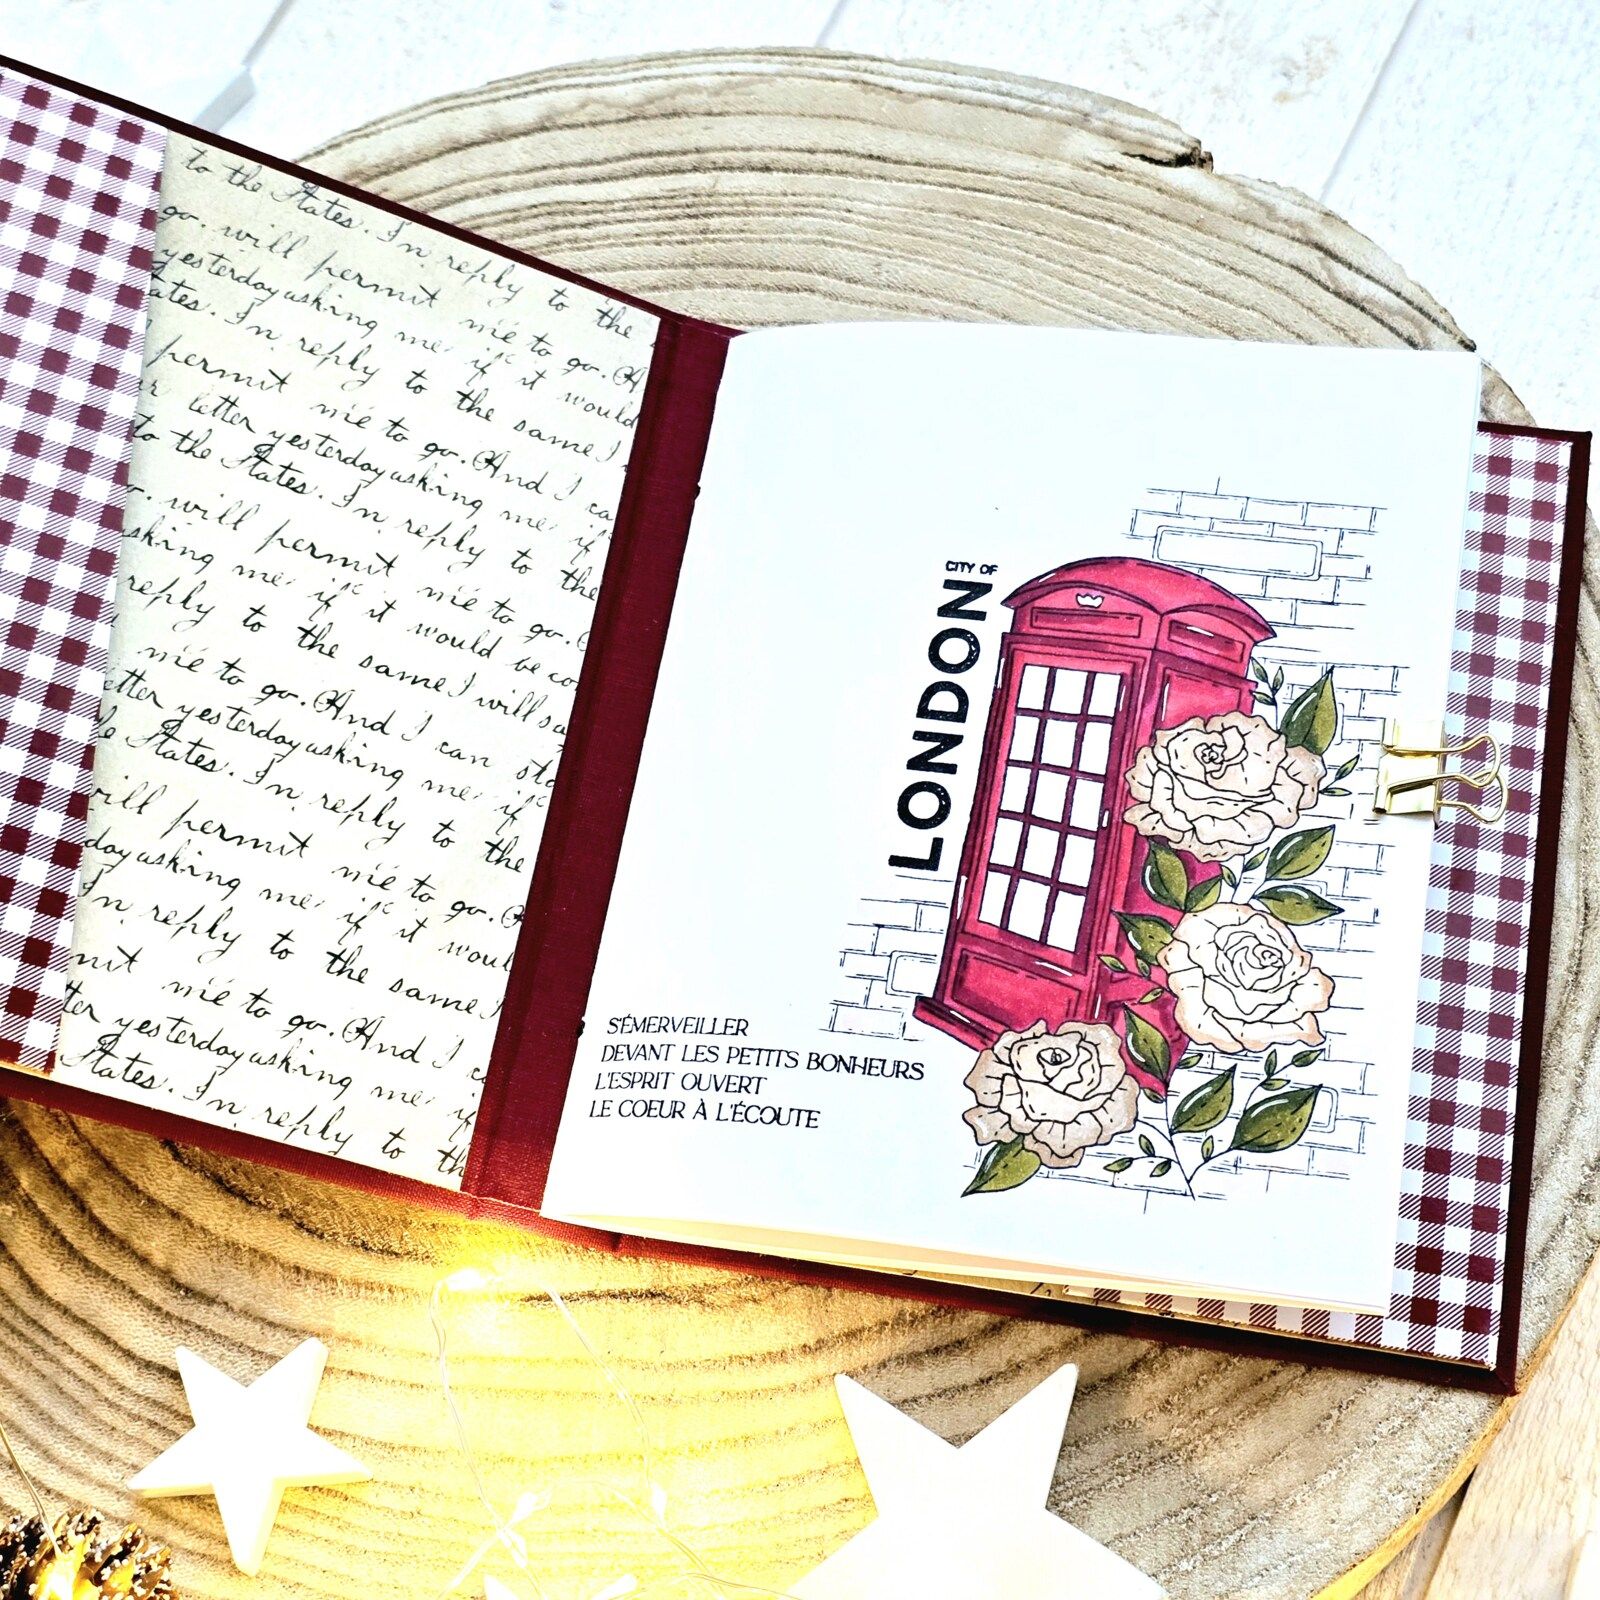 to the States. In reply to the
go. will permit me to go. A
yesterday asking me if it would
ates. In reply to the same I
permit me to go. And I ca
letter yesterday asking me if
to the States. In reply to the
will permit me to go.
asking me if it would be co
reply to the same I will sa
me to go. And I can sta
etter yesterday asking me if
States. In reply to the
will permit me to go.
day asking me if it woul
In reply to the same I
mit me to go. And I ca
tter yesterday asking me if
States. In reply to th
CITY OF
LONDON
S'ÉMERVEILLER
DEVANT LES PETITS BONHEURS
L'ESPRIT OUVERT
LE COEUR À L'ÉCOUTE